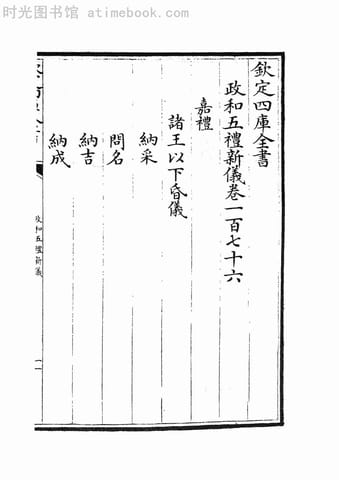 时光图书馆 - atimebook.com
欽定四庫全書
政和五禮新儀卷一百七十六
嘉禮
諸王以下昏儀
納采
問名
納吉
納成
政和五禮新儀